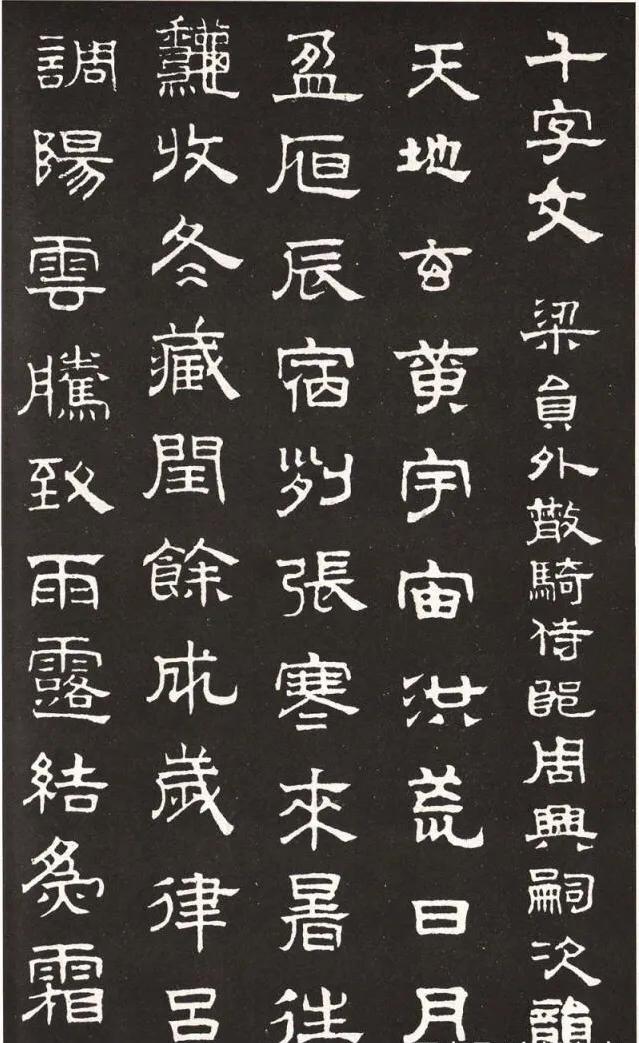 千字文 梁員外散騎侍郎周興嗣次韻
天地玄黃宇宙洪荒日月
盈昃辰宿列張寒來暑往
龝收冬藏閏餘成歲律呂
調陽雲騰致雨露結為霜